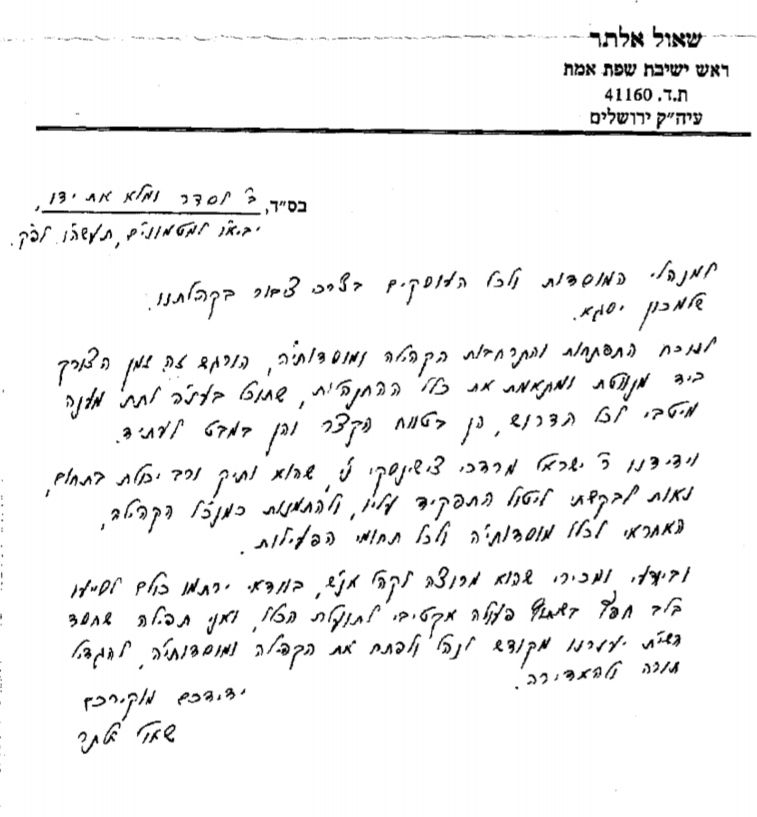 שאול אלתר
ראש ישיבת שפת אמת
ת.ד. 41160
עיה״ק ירושלים
בס״ד, ב' לסדר ומלא את ידו,
למטמונים, תשע"ו לפ"ק.
למנהלי המוסדות ולכל העוסקים בצרכי ציבור בקהלתנו.
שלמכון יסגא.
לנוכח התפתחות והתרחבות הקהלה ומוסדותיה, הורגש זה זמן הצורך
ביד מנווטת ומתאמת את כלל ההתנהלות, שתוכל בעז"ה לתת מענה
מיטבי לכל הדרוש, הן בטווח הקצר והן במבט לעתיד.
וידידנו ר' ישראל מרדכי צישינסקי ני', שהוא ותיק ורב יכולת בתחום,
נאות לבקשתי ליטול התפקיד עליו, ולהתמנות כמנכ"ל הקהלה,
האחראי לכלל מוסדותיה ולכל תחומי הפעילות.
וביודעי ומכירי שהוא מרוצה לקהל אנ"ש, בוודאי ירתמו כולם לסייעו
בלב חפץ בשיתוף פעולה אקטיבי לתועלת הכלל, ואני תפילה שחסד
השי"ת יעזרנו מקודש לנהל ולפתח את הקהלה ומוסדותיה, להגדיל
תורה ולהאדירה.
ידידכם מוקירכם
שאול אלתר